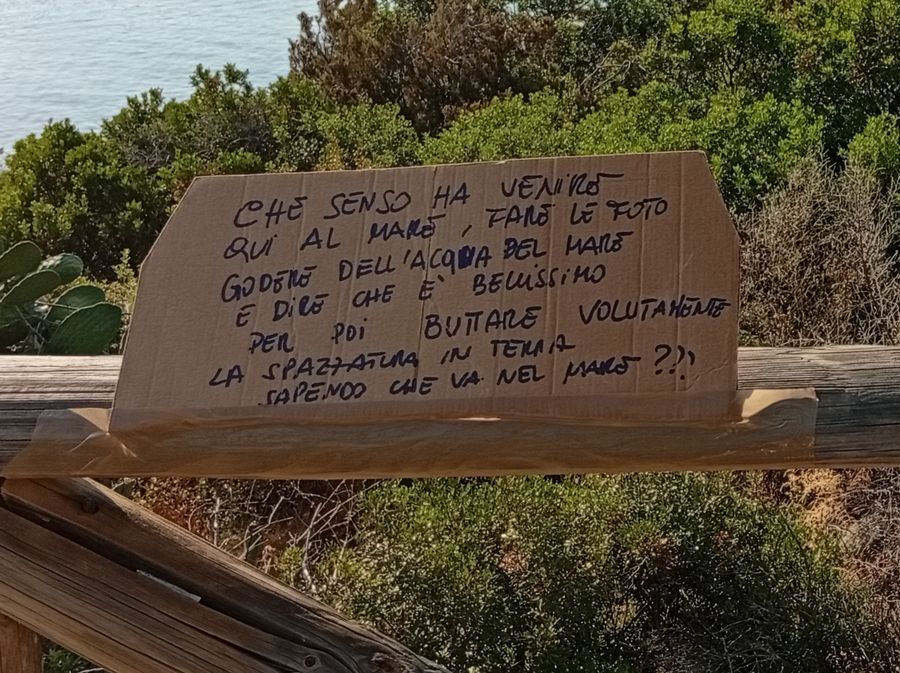 CHE SENSO HA VENIRE
QUI AL MARE, FARE LE FOTO
GODERE DELL'ACQUA DEL MARE
E DIRE CHE E' BELLISSIMO
PER POI BUTTARE VOLUTAMENTE
LA SPAZZATURA IN TERRA
SAPENDO CHE VA NEL MARE ???